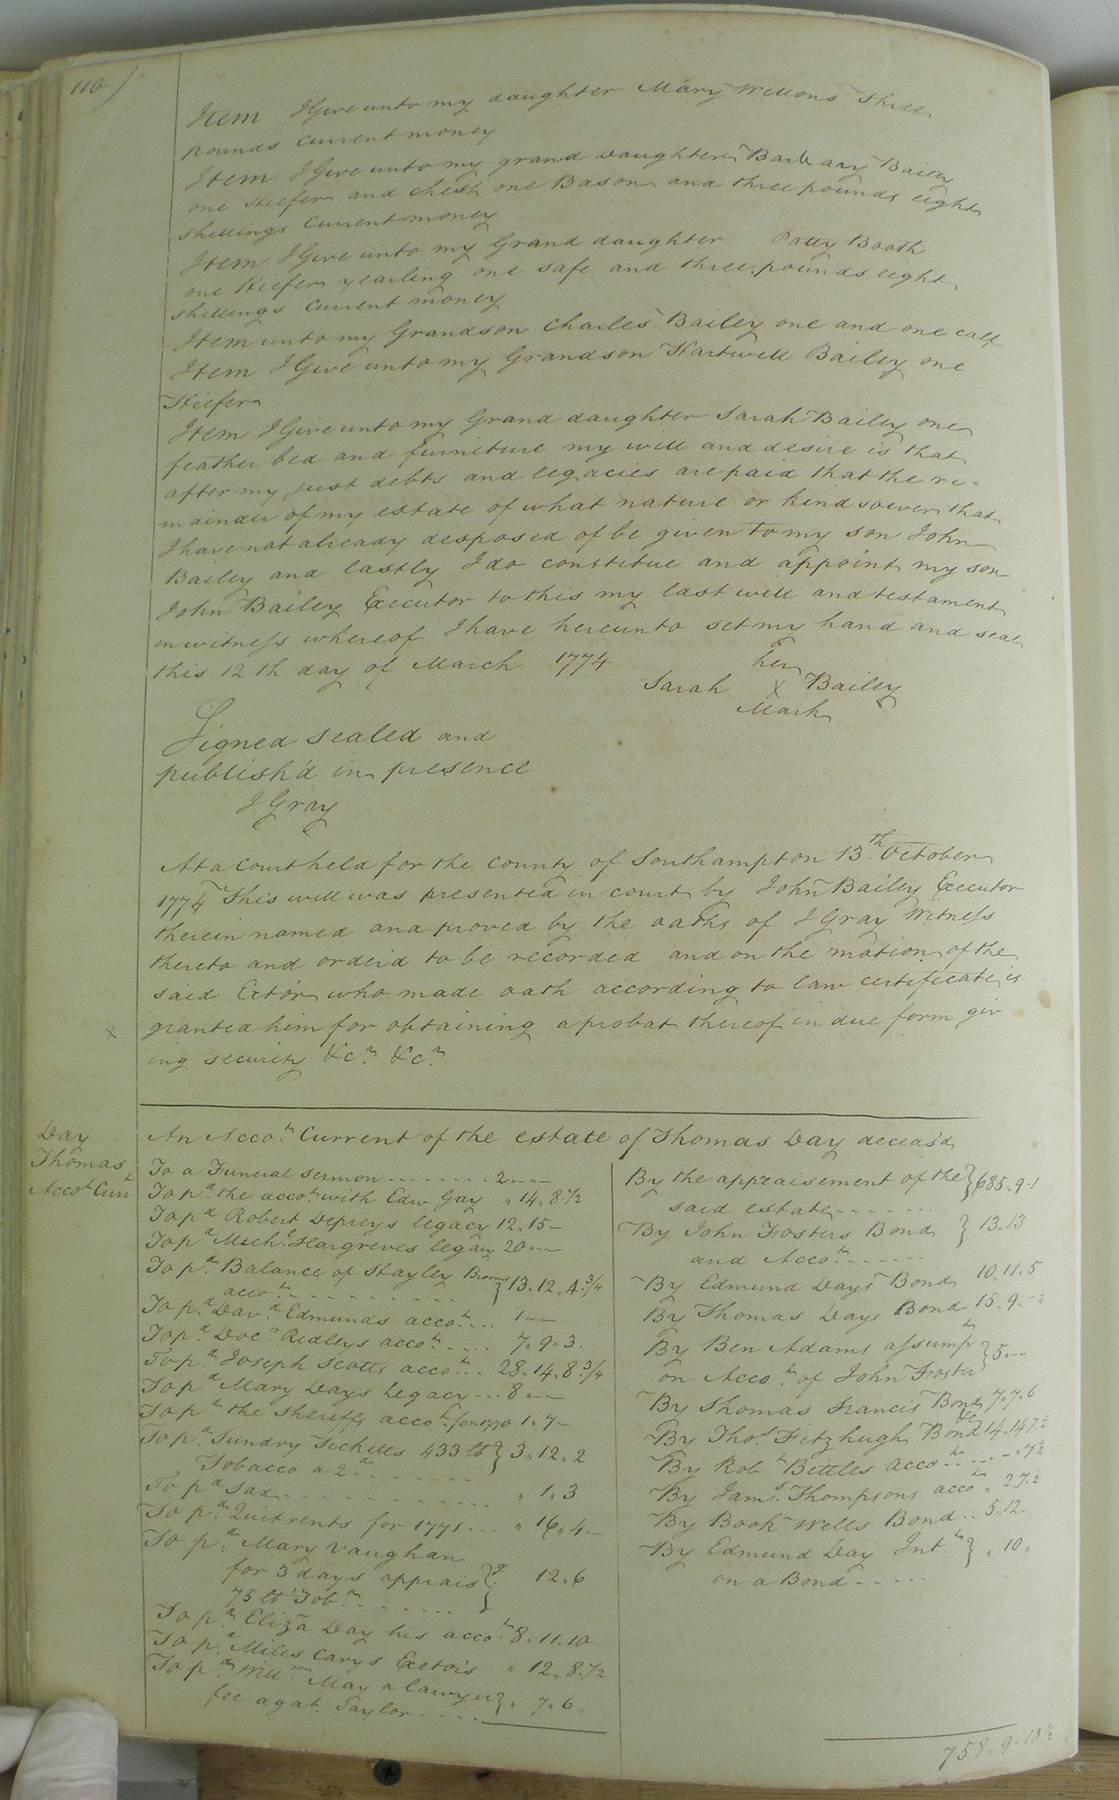 110)
Item I Give unto my daughter Mary Wellons three
pounds current money
Item I Give unto my grand daughter Barbary Bailey
one Heifer and Chest one Bason and three pounds eight
shillings Current money
Item I Give unto my Grand daughter Patty Booth
one Heifer yearling one safe and three pounds eight
shillings Current money
Item unto my Grandson Charles Bailey one and one calf
Item I Give unto my Grandson Hartwell Bailey one
Heifer
Item I Give unto my Grand daughter Sarah Bailey one
feather bed and furniture my will and desire is that
after my just debts and legacies are paid that the re=
mainder of my estate of what nature or kind soever that
I have not already desposed of be given to my son John
Bailey and lastly I do constitue and appoint my son
John Bailey Executor to this my last will and testament
in witness whereof I have hereunto set my hand and seal
this 12th day of March 1774
her
Sarah X Bailey
Mark
Signed sealed and
publish'd in presence
J Gray
At a Court held for the county of Southampton 13th October
1774 This will was presented in court by John Bailey Executor
therein named and proved by the oaths of J Gray Witness
thereto and orderd to be recorded and on the motion of the
said Exto'r who made oath according to law certificate is
x granted him for obtaining a probat thereof in due form giv
ing security &ca &ca
Day
Thomas
Accot Curt
An Accot Current of the estate of Thomas Day deceas'd
To a Funeral sermon ........ 2 — —
To pd the accot with Edw Gay " 14 " 8 1/2
To pd Robert Depreys legacy 12 " 15 —
To pd Michl Hargreves legacy 20 — —
To pd Balance of Hayley Browns } 13 " 12 " 4 3/4
accot
To pd Davd Edmunds accot ... 1 — —
To pd Docr Ridleys accot .... 7 " 9 " 3
To pd Joseph Scotts accot .. 28 " 14 " 8 3/4
To pd Mary Days Legacy ... 8 — —
To pd the Sheriffs accot for 1770 1 " 7 —
To pd Sundry Ticketts 433 lt } 3 " 12 " 2
Tobacco a 2d
To pd Tax ............ " 1 " 3
To pd Quitrents for 1771 ... " 16 " 4 —
To pd Mary Vaughan
for 3 days apprais } 12 " 6
75 lt Tobo
To pd Eliza Day his accot 8 " 11 " 10
To pd Miles Carys Exto'rs " 12 " 8 1/2
To pd Willm May a lawyers } " 7 " 6
fee agat Taylor ....
By the appraisement of the } 685 " 9 " 1
said estate
By John Fosters Bond } 13 " 13
and Accot
By Edmund Days Bond 10 " 11 " 5
By Thomas Days Bond 15 " 9
By Ben Adams assumpt } 5 — —
on Accot of John Foster
By Thomas Francis Bond 7 " 7 " 6
By Thos Fitzhugh Bond &c 14 " 14 7 1/2
By Robt Bittles acco .... 7 1/2
By Jams Thompsons accot " 2 7 1/2
By Book Wells Bond .. 5 " 12 —
By Edmund Day Intt } " 10 "
on a Bond
758 " 9 " 10 1/2